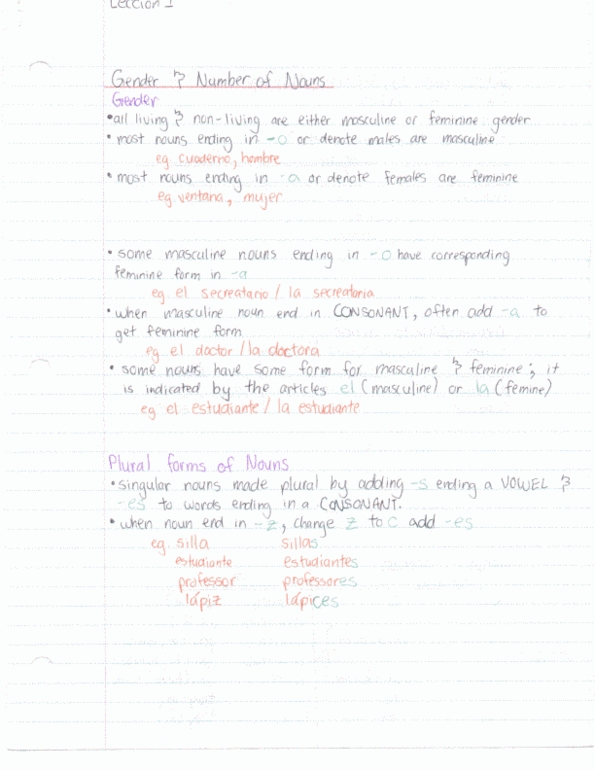 Lección 1
Gender & Number of Nouns
Gender
•all living & non-living are either masculine or feminine gender
•most nouns ending in -o or denote males are masculine
eg cuaderno, hombre
•most nouns ending in -a or denote females are feminine
eg ventana, mujer
•some masculine nouns ending in -o have corresponding
feminine form in -a
eg. el secreatario / la secreatoria
•when masculine noun end in CONSONANT, often add -a to
get feminine form
eg. el doctor / la doctora
•some nouns have some form for mascaline & feminine; it
is indicated by the articles el (masculine) or la (femine)
eg el estudiante / la estudiante
Plural forms of Nouns
•singular nouns made plural by adding -s ending a VOWEL &
-es to words ending in a CONSONANT.
•when noun end in -z, change z to c add -es
eg. silla sillas
estudiante estudiantes
professor professores
lápiz lápices